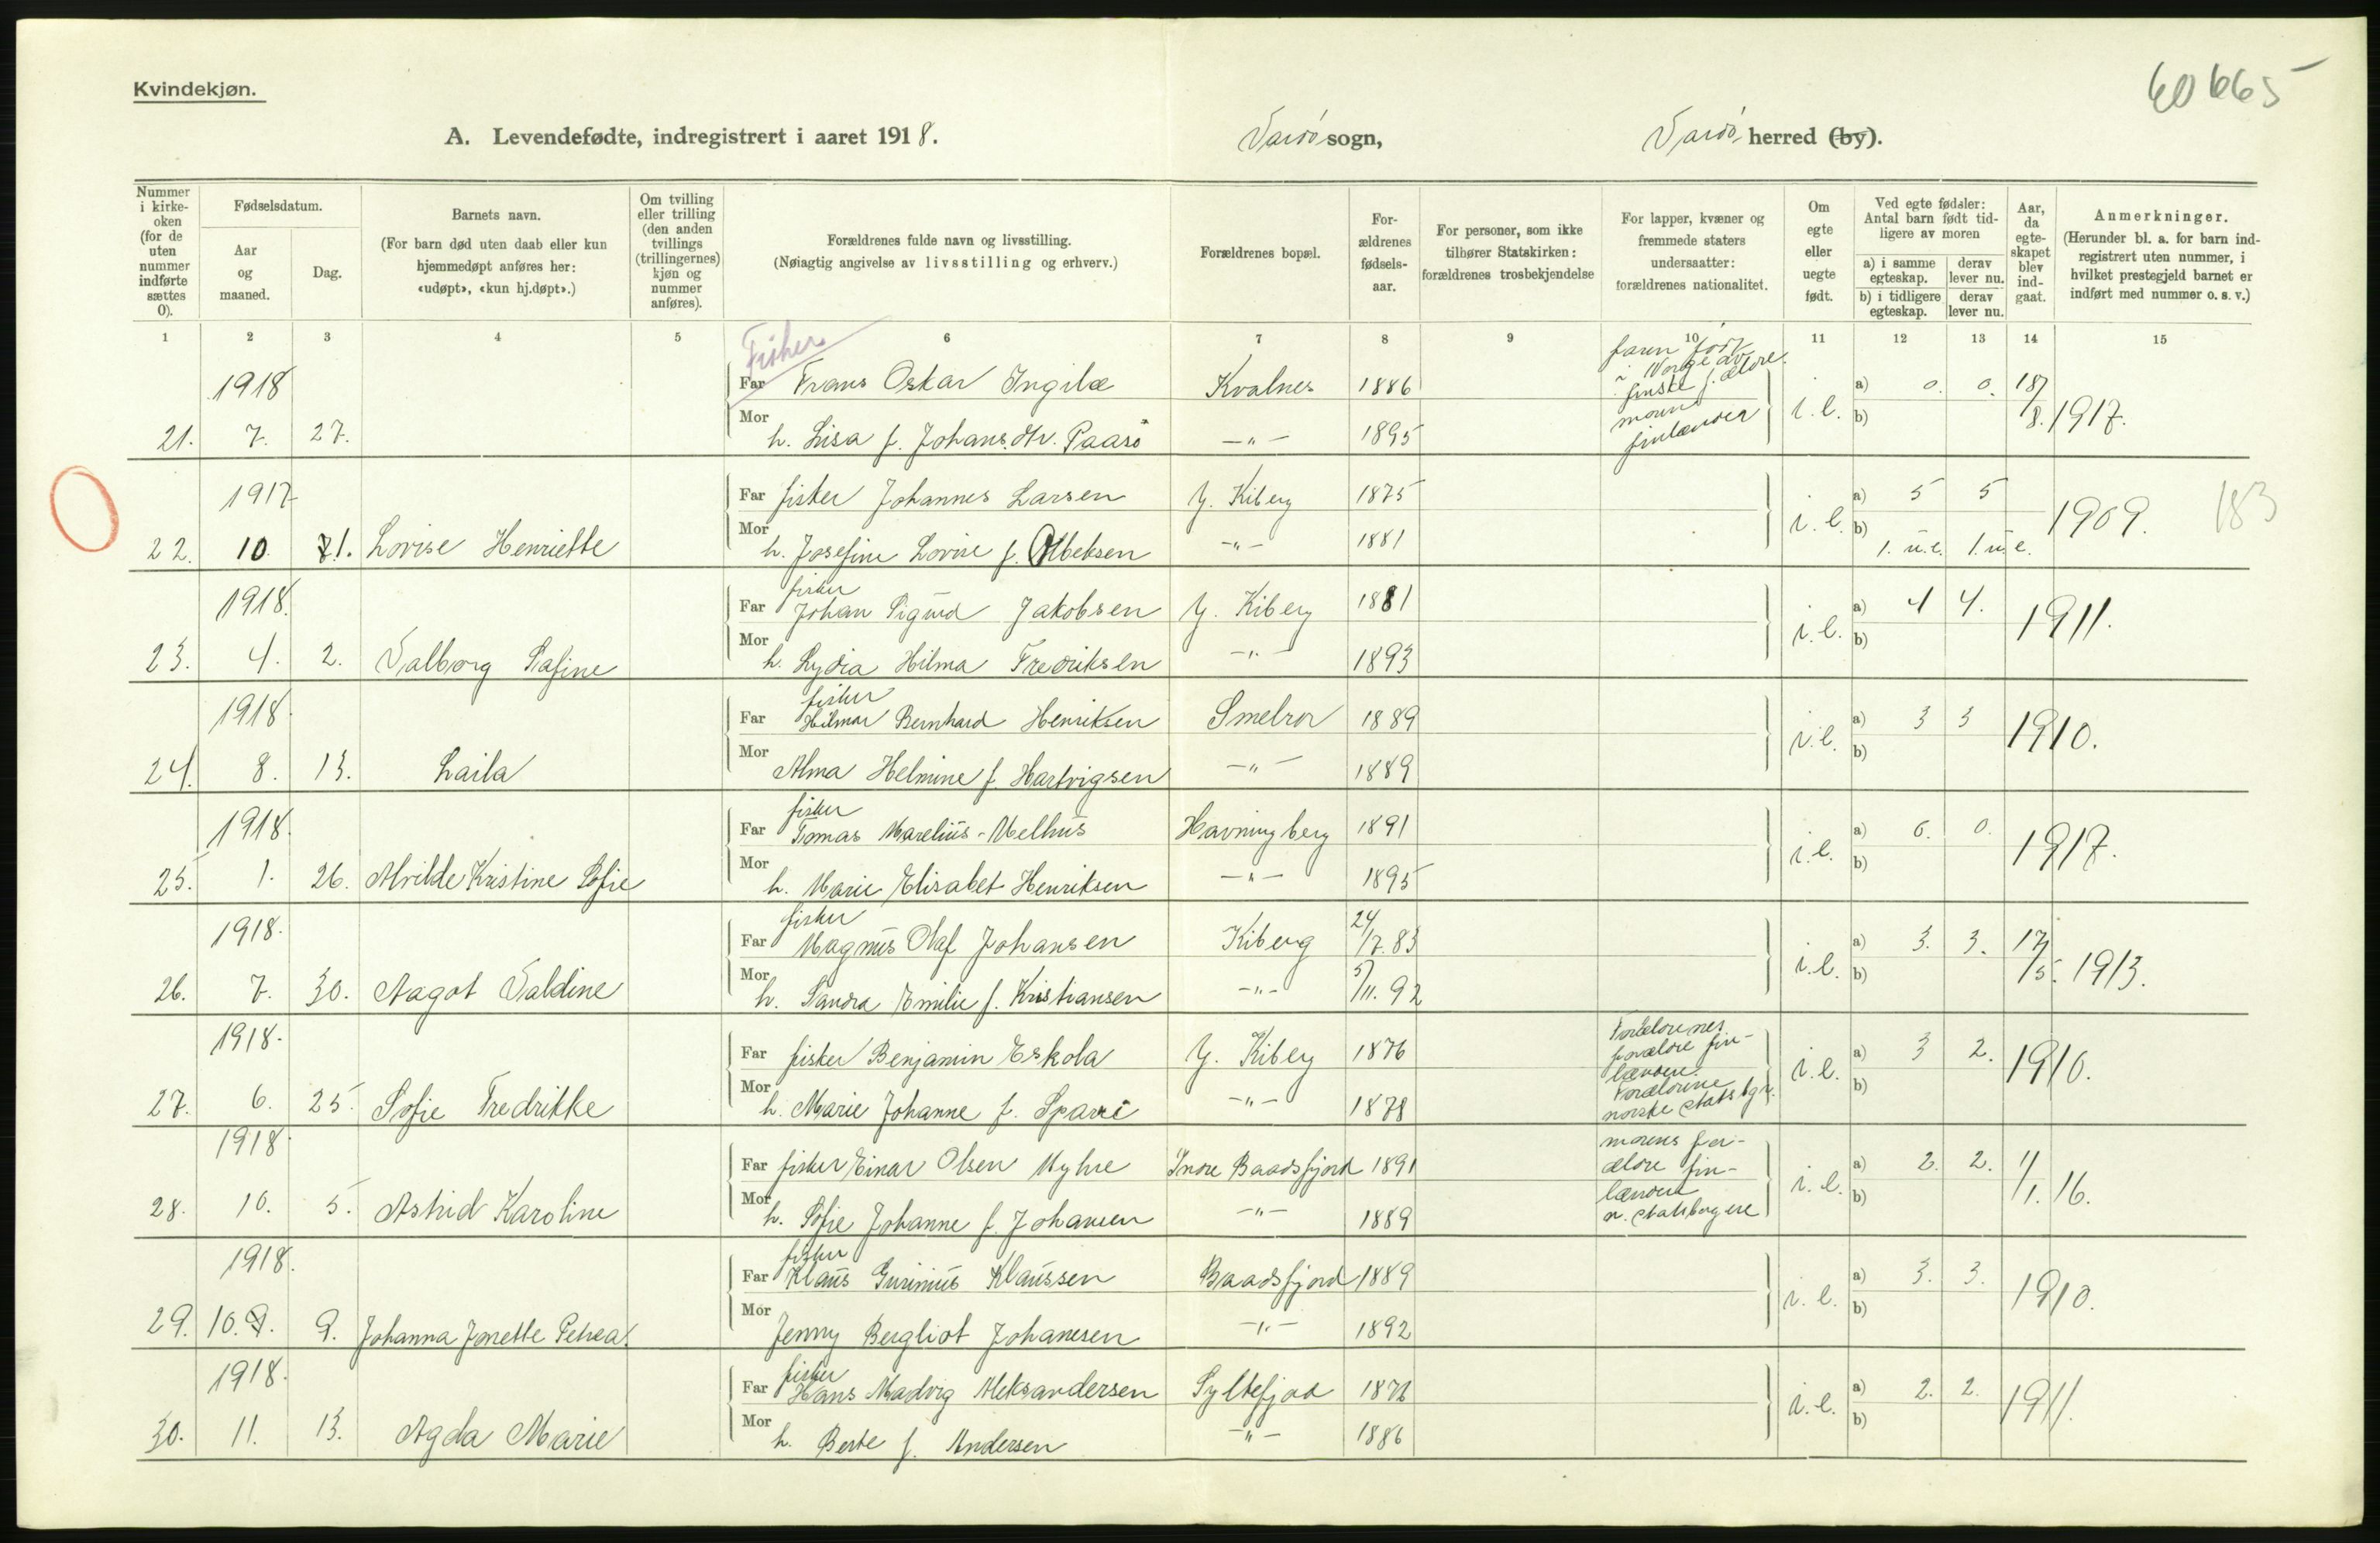 Kvindekjøn.
60665
A. Levendefødte, indregistrert i aaret 1918.
Vardø sogn,
Vardø herred (by).
Nummer i kirke-oken (for de uten nummer indførte sættes 0).
Fødselsdatum.
Aar og maaned.
Dag.
Barnets navn.
(For barn død uten daab eller kun hjemmedøpt anføres her: «udøpt», «kun hj.døpt».)
Om tvilling eller trilling (den anden tvillings (trillingernes) kjøn og nummer anføres).
Forældrenes fulde navn og livsstilling.
(Nøiagtig angivelse av livsstilling og erhverv.)
Forældrenes bopæl.
For-ældrenes fødsels-aar.
For personer, som ikke tilhører Statskirken: forældrenes trosbekjendelse
For lapper, kvæner og fremmede staters undersaatter: forældrenes nationalitet.
Om egte eller uegte født.
Ved egte fødsler: Antal barn født tid-ligere av moren
a) i samme egteskap.
derav lever nu.
b) i tidligere egteskap.
derav lever nu.
Aar, da egte-skapet blev ind-gaat.
Anmerkninger.
(Herunder bl. a. for barn ind-registrert uten nummer, i hvilket prestegjeld barnet er indført med nummer o. s. v.)
1 2 3 4 5 6 7 8 9 10 11 12 13 14 15
Fisker
1918 Far Frans Oskar Ingilæ Kvalnes 1886 faren født i Norge av finske f.ældre. a) 0. 0. 18/8. 1917.
21. 7. 27. Mor h. Lisa f. Johans.dtr. Paaso -"- 1895 moren finlænder i.e. b)
1917 Far fisker Johannes Larsen Y. Kiberg 1875 a) 5 5 1909. 183
22. 10. 21. Lovise Henriette Mor h. Josefine Lovise f. Olbeksen -"- 1881 i.e. b) 1. u.e. 1. u.e.
1918. Far fisker Johan Sigurd Jakobsen Y. Kiberg 1881 a) 4 4. 1911.
23. 4. 2. Valborg Safine Mor h. Lydia Hilma Fredriksen -"- 1893 i.e. b)
1918. Far fisker Hilmar Bernhard Henriksen Smelror 1889 a) 3 3 1910.
24. 8. 13. Laila Mor Alma Helmine f. Hartvigsen -"- 1889 i.e. b)
1918. Far fisker Tomas Marelius Melhus Havningberg 1891 a) 0. 0. 1917.
25. 1. 26. Alvilde Kristine Sofie Mor h. Marie Elisabet Henriksen -"- 1895 i.e. b)
1918. Far fisker Magnus Olaf Johansen Kiberg 24/7.83 a) 3. 3. 17/5. 1913.
26. 7. 30. Aagot Valdine Mor h. Sandra Emilie f. Kristiansen -"- 5/11.92 i.e. b)
1918. Far fisker Benjamin Eskola Y. Kiberg 1876 Forældrenes forældre finlændere. a) 3 2. 1910.
27. 6. 25. Sofie Fredrikke Mor h. Marie Johanne f. Sparri -"- 1878 Forældrene norske statsbgr. i.e. b)
1918. Far fisker Einar Olsen Myhre Indre Baadsfjord 1891 morens forældre finlændere a) 2. 2. 1/1. 16.
28. 10. 5. Astrid Karoline Mor h. Sofie Johanne f. Johansen -"- 1889 n. statsborgere i.e. b)
1918. Far fisker Klaus Gurinius Klaussen Baadsfjord 1889 a) 3. 3. 1910.
29. 10. 9. 9. Johanna Jonette Petrea. Mor Jenny Bergliot Johannesen -"- 1892 i.e. b)
1918. Far fisker Hans Madvig Aleksandersen Syltefjod 1876 a) 2. 2. 1911.
30. 11. 13. Agda Marie Mor h. Berte f. Andersen -"- 1886 i.e. b)